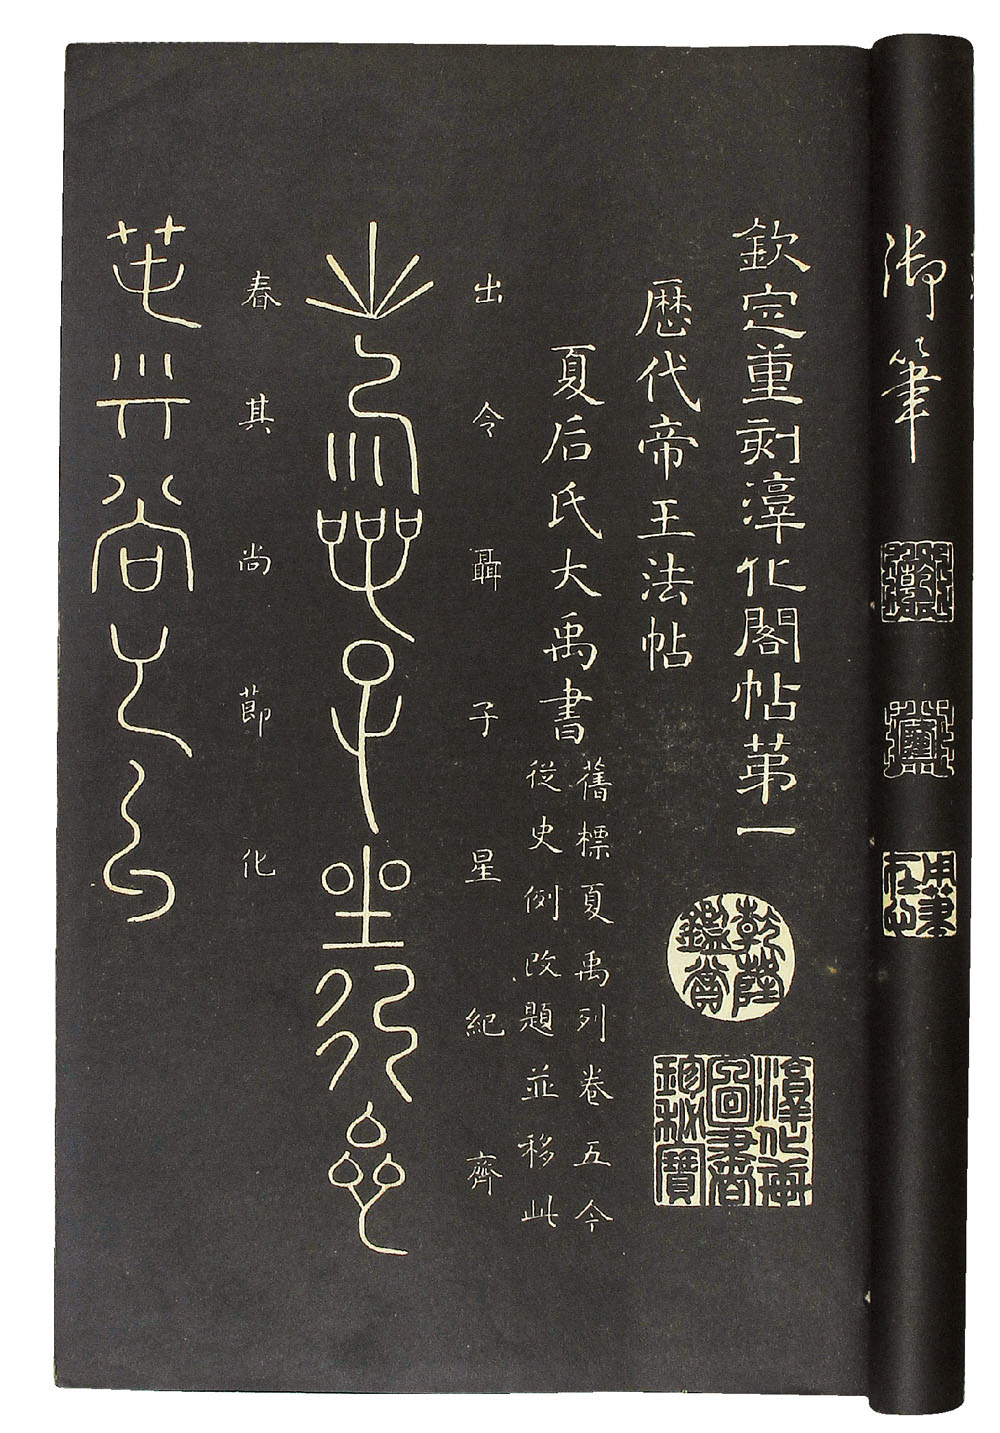 御筆
用筆在心
欽定重刻淳化閣帖第一
乾隆鑑賞
淳化軒圖書珍秘寶
歷代帝王法帖
夏后氏大禹書
舊標夏禹列卷五今
從史例改題並移此
出令聶子星紀齊
春其尚節化